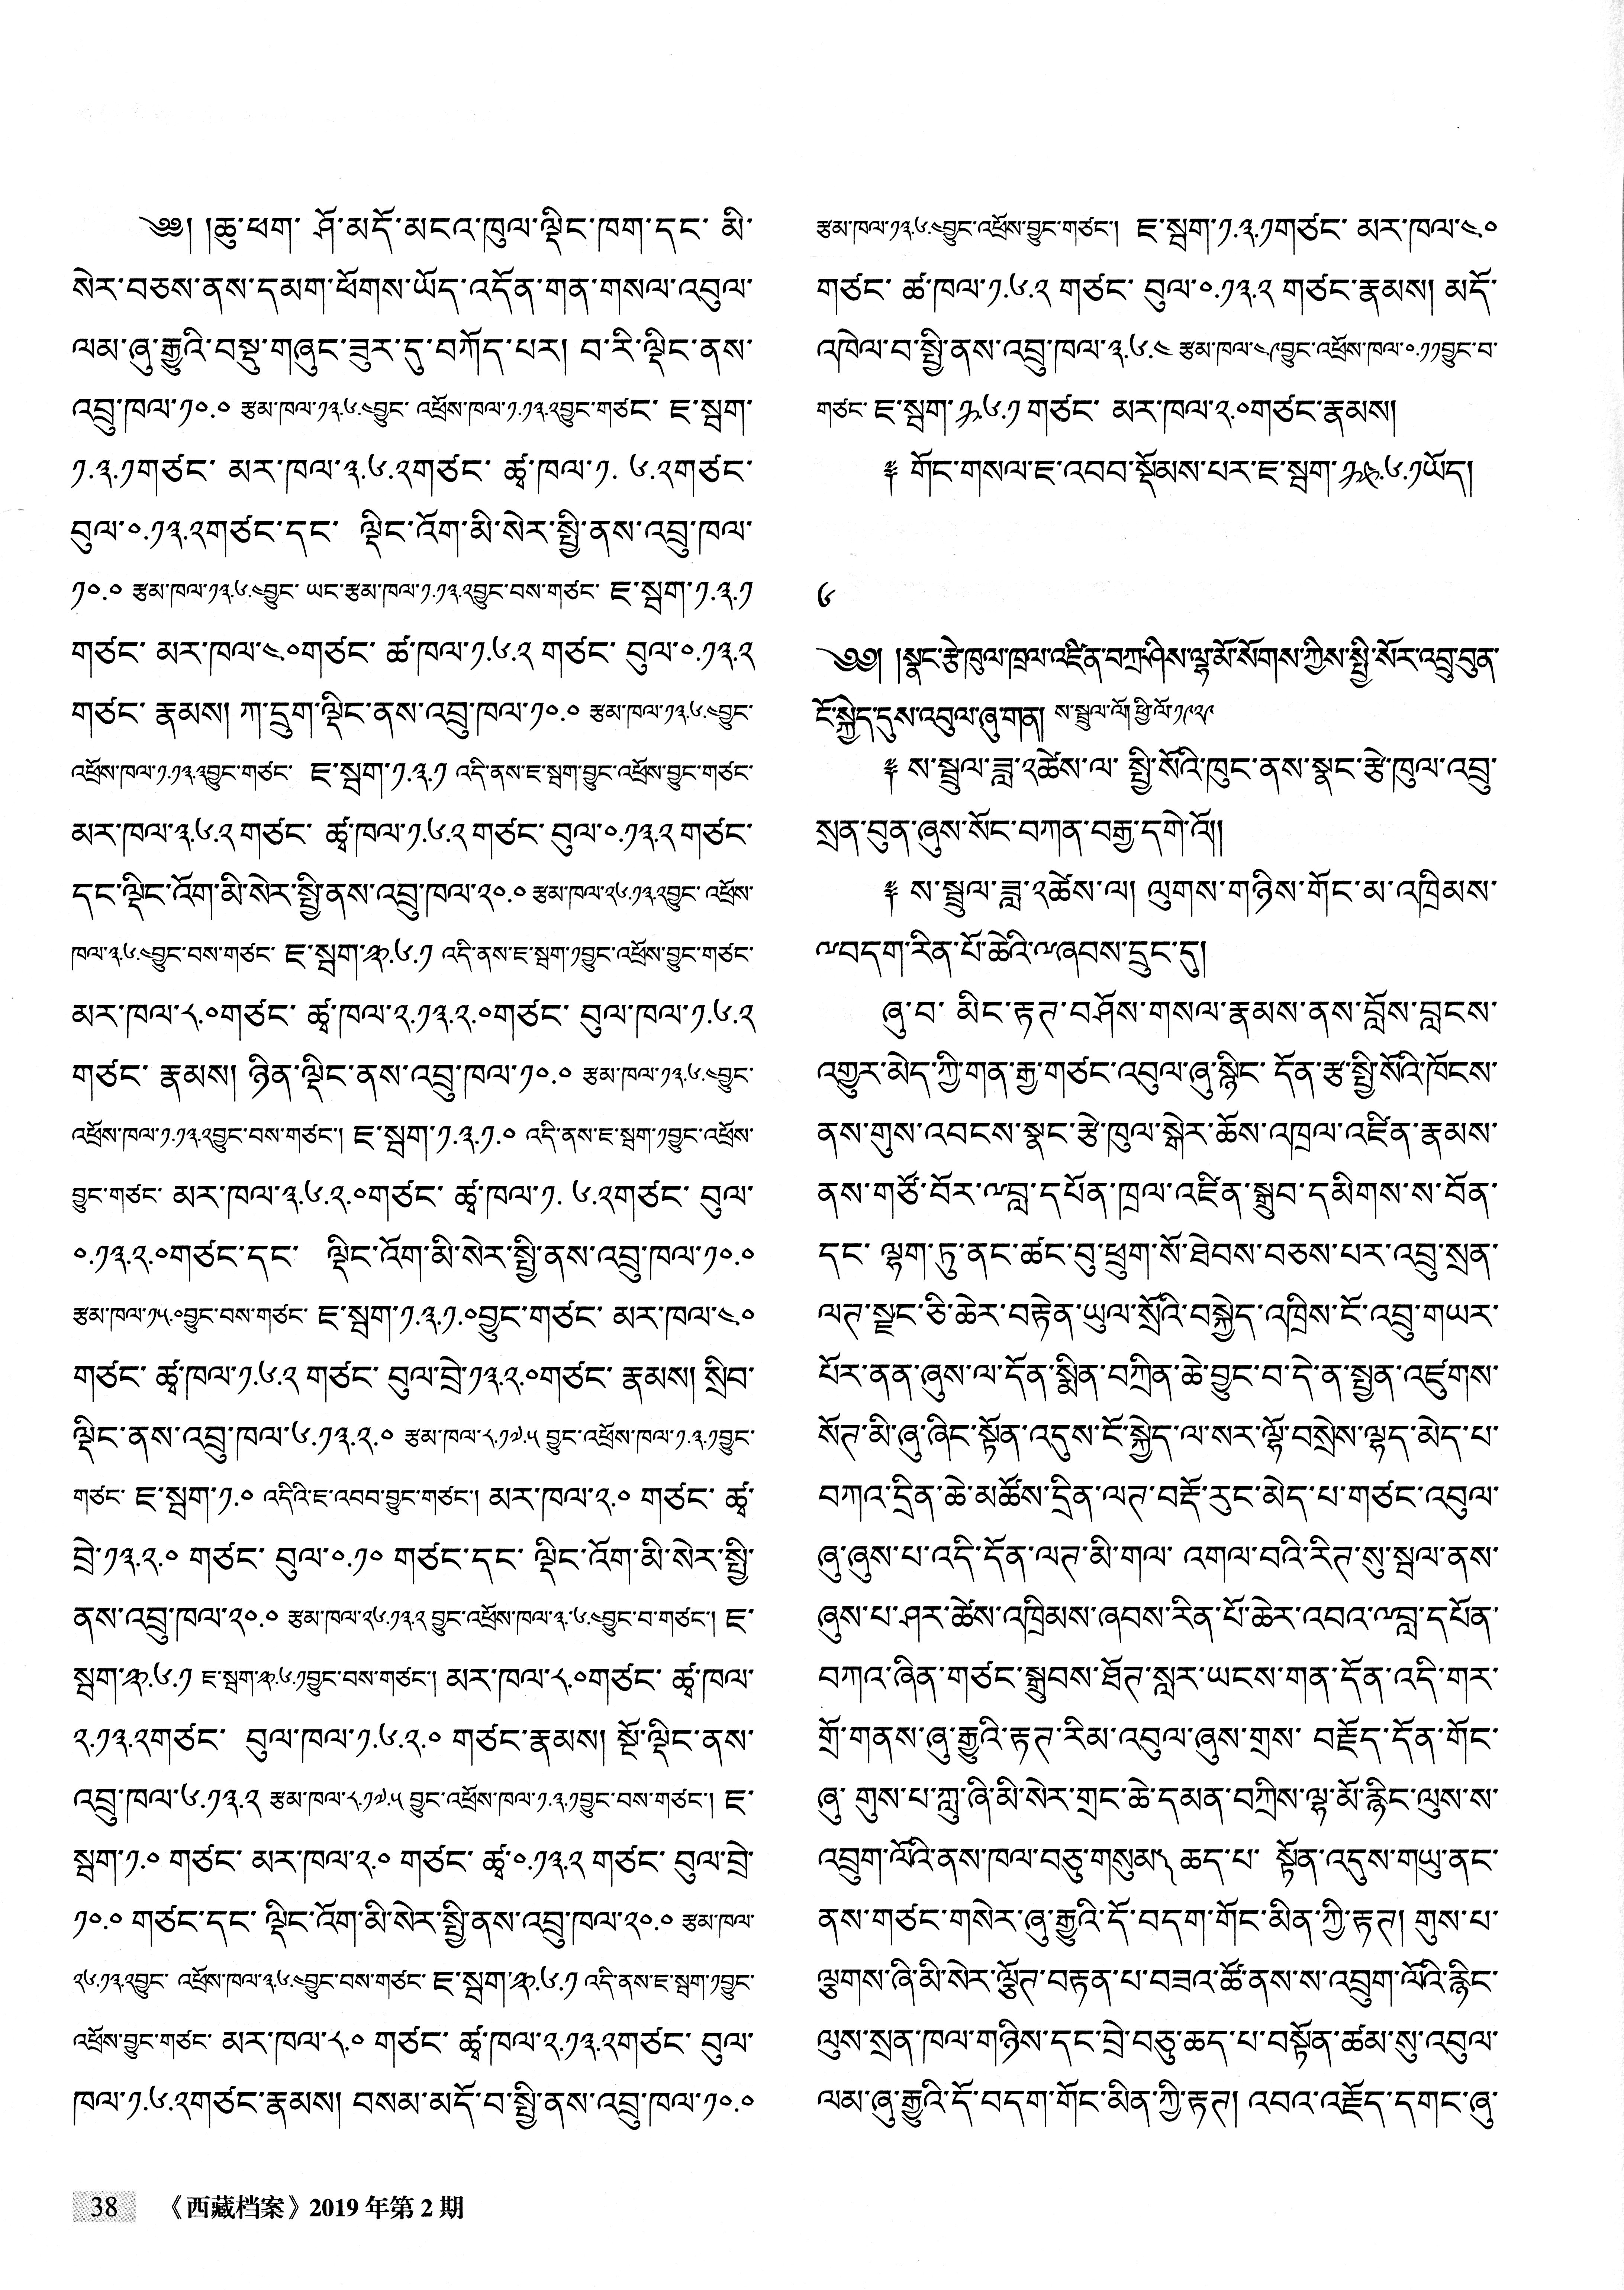 ༄༅། །ཆུ་ཕག་ ཤོ་མདོ་མངའ་ཁུལ་ལྡིང་ཁག་དང་ མི་
སེར་བཅས་ནས་དམག་ཕོགས་ཡོད་འདོན་གན་གསལ་འབུལ་
ལམ་ཞུ་རྒྱུའི་བསྡུ་གཞུང་ཟུར་དུ་བཀོད་པར། བ་རི་ལྡིང་ནས་
འབྲུ་ཁལ་༡༠.༠ རྩམ་ཁལ་༡༣.༦.༤བྱུང་ འཕྲོས་ཁལ་༡.༡༣.༢བྱུང་གཙང་ ཇ་སྦག་
༡.༣.༡གཙང་ མར་ཁལ་༣.༦.༢གཙང་ ཚྭ་ཁལ་༡. ༦.༢གཙང་
བུལ་༠.༡༣.༢གཙང་དང་ ལྡིང་འོག་མི་སེར་སྤྱི་ནས་འབྲུ་ཁལ་
༡༠.༠ རྩམ་ཁལ་༡༣.༦.༤བྱུང་ ཡང་རྩམ་ཁལ་༡.༡༣.༢བྱུང་བས་གཙང་ ཇ་སྦག་༡.༣.༡
གཙང་ མར་ཁལ་༤.༠གཙང་ ཚ་ཁལ་༡.༦.༢ གཙང་ བུལ་༠.༡༣.༢
གཙང་ རྣམས། ཀ་དྲུག་ལྡིང་ནས་འབྲུ་ཁལ་༡༠.༠ རྩམ་ཁལ་༡༣.༦.༤བྱུང་
འཕྲོས་ཁལ་༡.༡༣.༣བྱུང་གཙང་ ཇ་སྦག་༡.༣.༡ འདི་ནས་ཇ་སྦག་བྱུང་འཕྲོས་བྱུང་གཙང་
མར་ཁལ་༣.༦.༢ གཙང་ ཚྭ་ཁལ་༡.༦.༢ གཙང་ བུལ་༠.༡༣.༢ གཙང་
དང་ལྡིང་འོག་མི་སེར་སྤྱི་ནས་འབྲུ་ཁལ་༢༠.༠ རྩམ་ཁལ་༢༦.༡༣.༢བྱུང་ འཕྲོས་
ཁལ་༣.༦.༤བྱུང་བས་གཙང་ ཇ་སྦག་.༦.༡ འདི་ནས་ཇ་སྦག་༡བྱུང་འཕྲོས་བྱུང་གཙང་
མར་ཁལ་༨.༠གཙང་ ཚྭ་ཁལ་༢.༡༣.༢.༠གཙང་ བུལ་ཁལ་༡.༦.༢
གཙང་ རྣམས། ཉིན་ལྡིང་ནས་འབྲུ་ཁལ་༡༠.༠ རྩམ་ཁལ་༡༣.༦.༤བྱུང་
འཕྲོས་ཁལ་༡.༡༣.༢བྱུང་བས་གཙང་། ཇ་སྦག་༡.༣.༡.༠ འདི་ནས་ཇ་སྦག་༡བྱུང་འཕྲོས་
བྱུང་གཙང་ མར་ཁལ་༣.༦.༢.༠གཙང་ ཚྭ་ཁལ་༡. ༦.༢གཙང་ བུལ་
༠.༡༣.༢.༠གཙང་དང་ ལྡིང་འོག་མི་སེར་སྤྱི་ནས་འབྲུ་ཁལ་༡༠.༠
རྩམ་ཁལ་༡༥.༠བྱུང་བས་གཙང་ ཇ་སྦག་༡.༣.༡.༠བྱུང་གཙང་ མར་ཁལ་༤.༠
གཙང་ ཚྭ་ཁལ་༡.༦.༢ གཙང་ བུལ་བྲེ་༡༣.༢.༠གཙང་ རྣམས། སྲིབ་
ལྡིང་ནས་འབྲུ་ཁལ་༦.༡༣.༢.༠ རྩམ་ཁལ་༨.༡༧.༥ བྱུང་འཕྲོས་ཁལ་༡.༣.༡བྱུང་
གཙང་ ཇ་སྦག་༡.༠ འདིའི་ཇ་འབབ་བྱུང་གཙང་། མར་ཁལ་༢.༠ གཙང་ ཚྭ་
བྲེ་༡༣.༢.༠ གཙང་ བུལ་༠.༡༠ གཙང་དང་ ལྡིང་འོག་མི་སེར་སྤྱི་
ནས་འབྲུ་ཁལ་༢༠.༠ རྩམ་ཁལ་༢༦.༡༣.༢ བྱུང་འཕྲོས་ཁལ་༣.་༦.༤བྱུང་བ་གཙང་། ཇ་
སྦག་.༦.༡ ཇ་སྦག་.༦.༡བྱུང་བས་གཙང་། མར་ཁལ་༨.༠གཙང་ ཚྭ་ཁལ་
༢.༡༣.༢གཙང་ བུལ་ཁལ་༡.༦.༢.༠ གཙང་རྣམས། སྔོ་ལྡིང་ནས་
འབྲུ་ཁལ་༦.༡༣.༢ རྩམ་ཁལ་༨.༡༧.༥ བྱུང་འཕྲོས་ཁལ་༡.༣.༡བྱུང་བས་གཙང་། ཇ་
སྦག་༡.༠ གཙང་ མར་ཁལ་༢.༠ གཙང་ ཚྭ་༠.༡༣.༢ གཙང་ བུལ་བྲེ་
༡༠.༠ གཙང་དང་ ལྡིང་འོག་མི་སེར་སྤྱི་ནས་འབྲུ་ཁལ་༢༠.༠ རྩམ་ཁལ་
༢༦.༡༣.༢བྱུང་ འཕྲོས་ཁལ་༣.༦.༤བྱུང་བས་གཙང་ ཇ་སྦག་.༦.༡ འདི་ནས་ཇ་སྦག་༡བྱུང་
འཕྲོས་བྱུང་གཙང་ མར་ཁལ་༨.༠ གཙང་ ཚྭ་ཁལ་༢.༡༣.༢གཙང་ བུལ་
ཁལ་༡.༦.༢གཙང་རྣམས། བསམ་མདོ་བ་སྤྱི་ནས་འབྲུ་ཁལ་༡༠.༠
རྩམ་ཁལ་༡༣.༦.༤བྱུང་འཕྲོས་བྱུང་གཙང་། ཇ་སྦག་༡.༣.༡གཙང་ མར་ཁལ་༤.༠
གཙང་ ཚ་ཁལ་༡.༦.༢ གཙང་ བུལ་༠.༡༣.༢ གཙང་རྣམས། མདོ་
འཁེལ་བ་སྤྱི་ནས་འབྲུ་ཁལ་༣.༦.༤ རྩམ་ཁལ་༤.༩བྱུང་འཕྲོས་ཁལ་༠.༡༡བྱུང་བ་
གཙང་ ཇ་སྦག་.༦.༡ གཙང་ མར་ཁལ་༢.༠གཙང་རྣམས།
༈ གོང་གསལ་ཇ་འབབ་སྡོམས་པར་ཇ་སྦག་.༦.༡ཡོད།
༦
༄༅། །སྣང་རྩེ་ཁུལ་ཁྲལ་འཛིན་བཀྲ་ཤིས་ལྷ་མོ་སོགས་ཀྱིས་སྤྱི་སོར་འབྲུ་བུན་
ངོ་སྐྱེད་དུས་འབུལ་ཞུ་གན། ས་སྦྲུལ་ལོ། ཕྱི་ལོ་༡༩༢༩
༈ ས་སྦྲུལ་ཟླ་༢ཚེས་ལ་ སྤྱི་སོའི་ཁུང་ནས་སྣང་རྩེ་ཁུལ་འབྲུ་
སྲན་བུན་ཞུས་སོང་བཀན་བརྒྱ་དགེ་འོ།།
༈ ས་སྦྲུལ་ཟླ་༢ཚེས་ལ། ལུགས་གཉིས་གོང་མ་འཁྲིམས་
༧བདག་རིན་པོ་ཆེའི་༧ཞབས་དྲུང་དུ།
ཞུ་བ་ མིང་རྟཊ་བཤོས་གསལ་རྣམས་ནས་བློས་བླངས་
འགྱུར་མེད་ཀྱི་གན་རྒྱ་གཙང་འབུལ་ཞུ་སྙིང་ དོན་རྩ་སྤྱི་སོའི་ཁོངས་
ནས་གུས་འབངས་སྣང་རྩེ་ཁུལ་སྒེར་ཆོས་འཁྲལ་འཛིན་རྣམས་
ནས་གཙོ་བོར་༧བླ་དཔོན་ཁྲལ་འཛིན་སྒྲུབ་དམིགས་ས་བོན་
དང་ ལྷག་ཏུ་ནང་ཚང་བུ་ཕྲུག་སོ་ཐེབས་བཅས་པར་འབྲུ་སྲན་
ལཊ་སྔང་ཅི་ཆེར་བརྟེན་ཡུལ་སྲོའི་བསྐྱེད་འཁྲིས་ངོ་འབྲུ་གཡར་
པོར་ནན་ཞུས་ལ་དོན་སྨིན་བཀྲིན་ཆེ་བྱུང་བ་དེ་ན་སྤྱན་འཛུགས་
སོཊ་མི་ཞུ་ཞིང་སྟོན་འདུས་ངོ་སྐྱེད་ལ་སར་ལྟོ་བསྲེས་ལྷད་མེད་པ་
བཀའ་དྲིན་ཆེ་མཚོས་དྲིན་ལཊ་བརྡོ་རུང་མེད་པ་གཙང་འབུལ་
ཞུ་ཞུས་པ་འདི་དོན་ལཊ་མི་གལ་ འགལ་བའི་རིཊ་སུ་སྦལ་ནས་
ཞུས་པ་ཤར་ཚེས་འཁྲིམས་ཞབས་རིན་པོ་ཆེར་འབའ་༧བླ་དཔོན་
བཀའ་ཞིན་གཙང་སྒྲུབས་ཐོཊ་སླར་ཡངས་གན་དོན་འདི་གར་
གྲོ་གནས་ཞུ་རྒྱུའི་རྟཊ་རིམ་འབུལ་ཞུས་གྲས་ བརྗོད་དོན་གོང་
ཞུ་ གུས་པ་ཀླུ་ཞི་མི་སེར་གྲང་ཆེ་དམན་བཀྲིས་ལྷ་མོ་རྙིང་ལུས་ས་
འབྲུག་ལོའི་ནས་ཁལ་བཅུ་གསུམ༢ ཆད་པ་ སྟོན་འདུས་གཡུ་ནང་
ནས་གཙང་གསེར་ཞུ་རྒྱུའི་དོ་བདག་གོང་མིན་ཀྱི་རྟཊ། གུས་པ་
ལྕགས་ཞི་མི་སེར་ལྕོཊ་བརྟན་པ་བཟའ་ཚོ་ནས་ས་འབྲུག་ལོའི་རྙིང་
ལུས་སྲན་ཁལ་གཉིས་དང་བྲེ་བཅུ་ཆད་པ་བསྟོན་ཚམ་སུ་འབུལ་
ལམ་ཞུ་རྒྱུའི་དོ་བདག་གོང་མིན་ཀྱི་རྟཊ། འབའ་འརྗོད་དགང་ཞུ་
38 《西藏档案》2019 年第 2 期